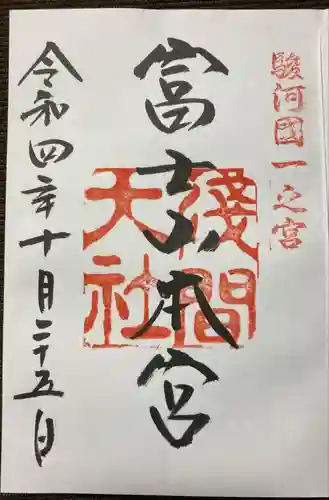 駿河國一之宮
富士山本宮
淺間大社
令和四年十月二十五日